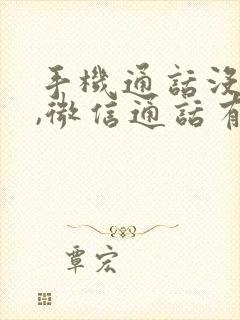 手機通話沒
,微信通話有
覃宏